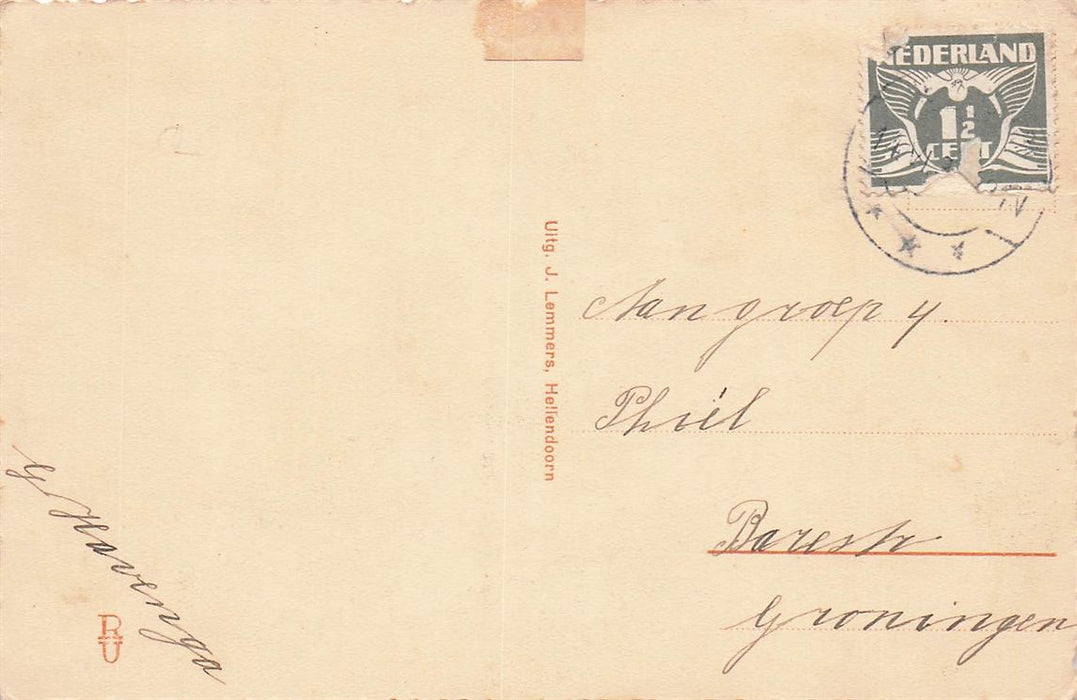 NEDERLAND
1 1/2
CENT
Uitg. J. Lemmers, Hellendoorn
Aan groep 4.
Phiël
Barestr
Groningen
G Havenga
R
U